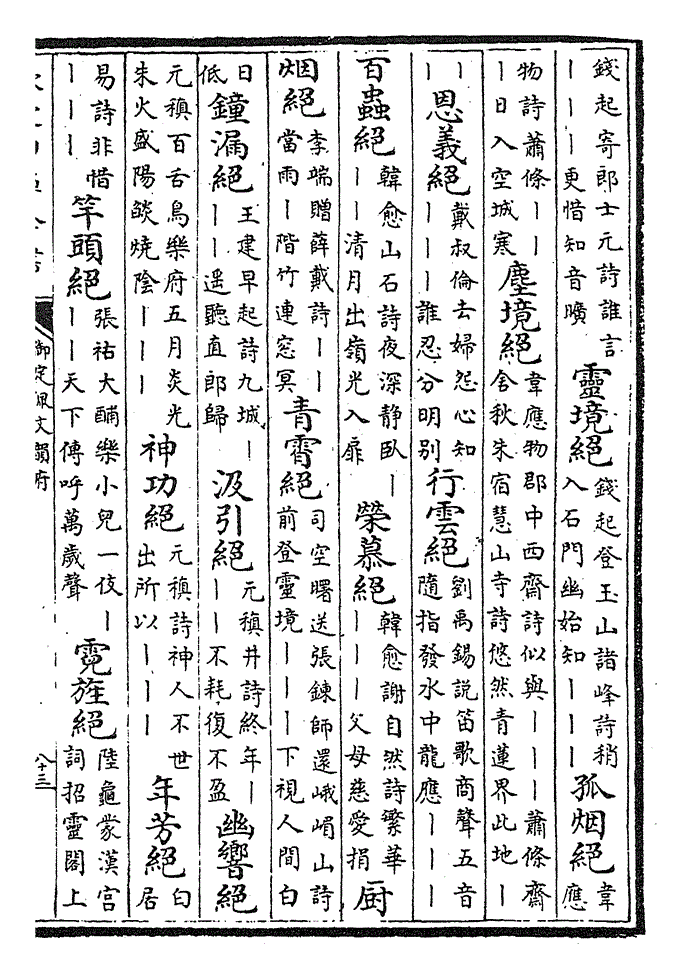 錢起寄郎士元詩誰言
丨丨丨更惜知音曠
靈境絕
錢起登玉山諸峰詩稍
入石門幽始知丨丨丨
孤烟絕
韋
應
物詩蕭條丨丨
丨日入空城寒
塵境絕
韋應物郡中西齋詩似與丨丨丨蕭條齋
舍秋朱宿慧山寺詩悠然青蓮界此地丨
丨
丨
恩義絕
戴叔倫去婦怨心知
丨丨丨誰忍分明別
行雲絕
劉禹錫說笛歌商聲五音
隨指發水中龍應丨丨丨
百蟲絕
韓愈山石詩夜深静卧丨
丨丨清月出嶺光入扉
榮慕絕
韓愈謝自然詩繁華
丨丨丨父母慈愛捐
厨
烟絕
李端贈薛戴詩丨丨
當雨丨階竹連窓冥
青霄絕
司空曙送張鍊師還峨嵋山詩
前登靈境丨丨丨下視人間白
日
低
鐘漏絕
王建早起詩九城丨
丨丨遥聽直郎歸
汲引絕
元稹井詩終年丨
丨丨不耗復不盈
幽響絕
元稹百舌鳥樂府五月炎光
朱火盛陽燄燒陰丨丨丨
神功絕
元稹詩神人不世
出所以丨丨丨
年芳絕
白
居
易詩非惜
丨丨丨
竿頭絕
張祜大酺樂小兒一伎丨
丨丨天下傳呼萬歲聲
霓旌絕
陸龜蒙漢宫
詞招靈閣上
御定佩文韻府
八十三